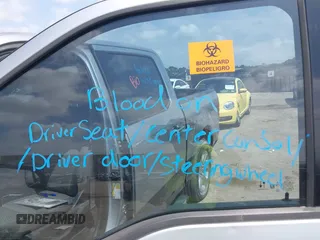 BIOHAZARD
BIOPELIGRO
Blood on
Driver Seat/Center Consol/
/Driver door/Steering wheel
DREAMBID